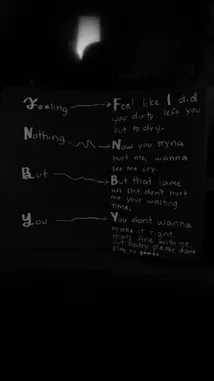 Feeling Feel like I did
you dirty. left you
out to dry.
Nothing Now you tryna
hurt me, wanna
see me cry.
But But that lame
ass shit don't hurt
me your wasting
time.
You You dont wanna
make it right,
thats fine with me.
but baby please dont
play no games